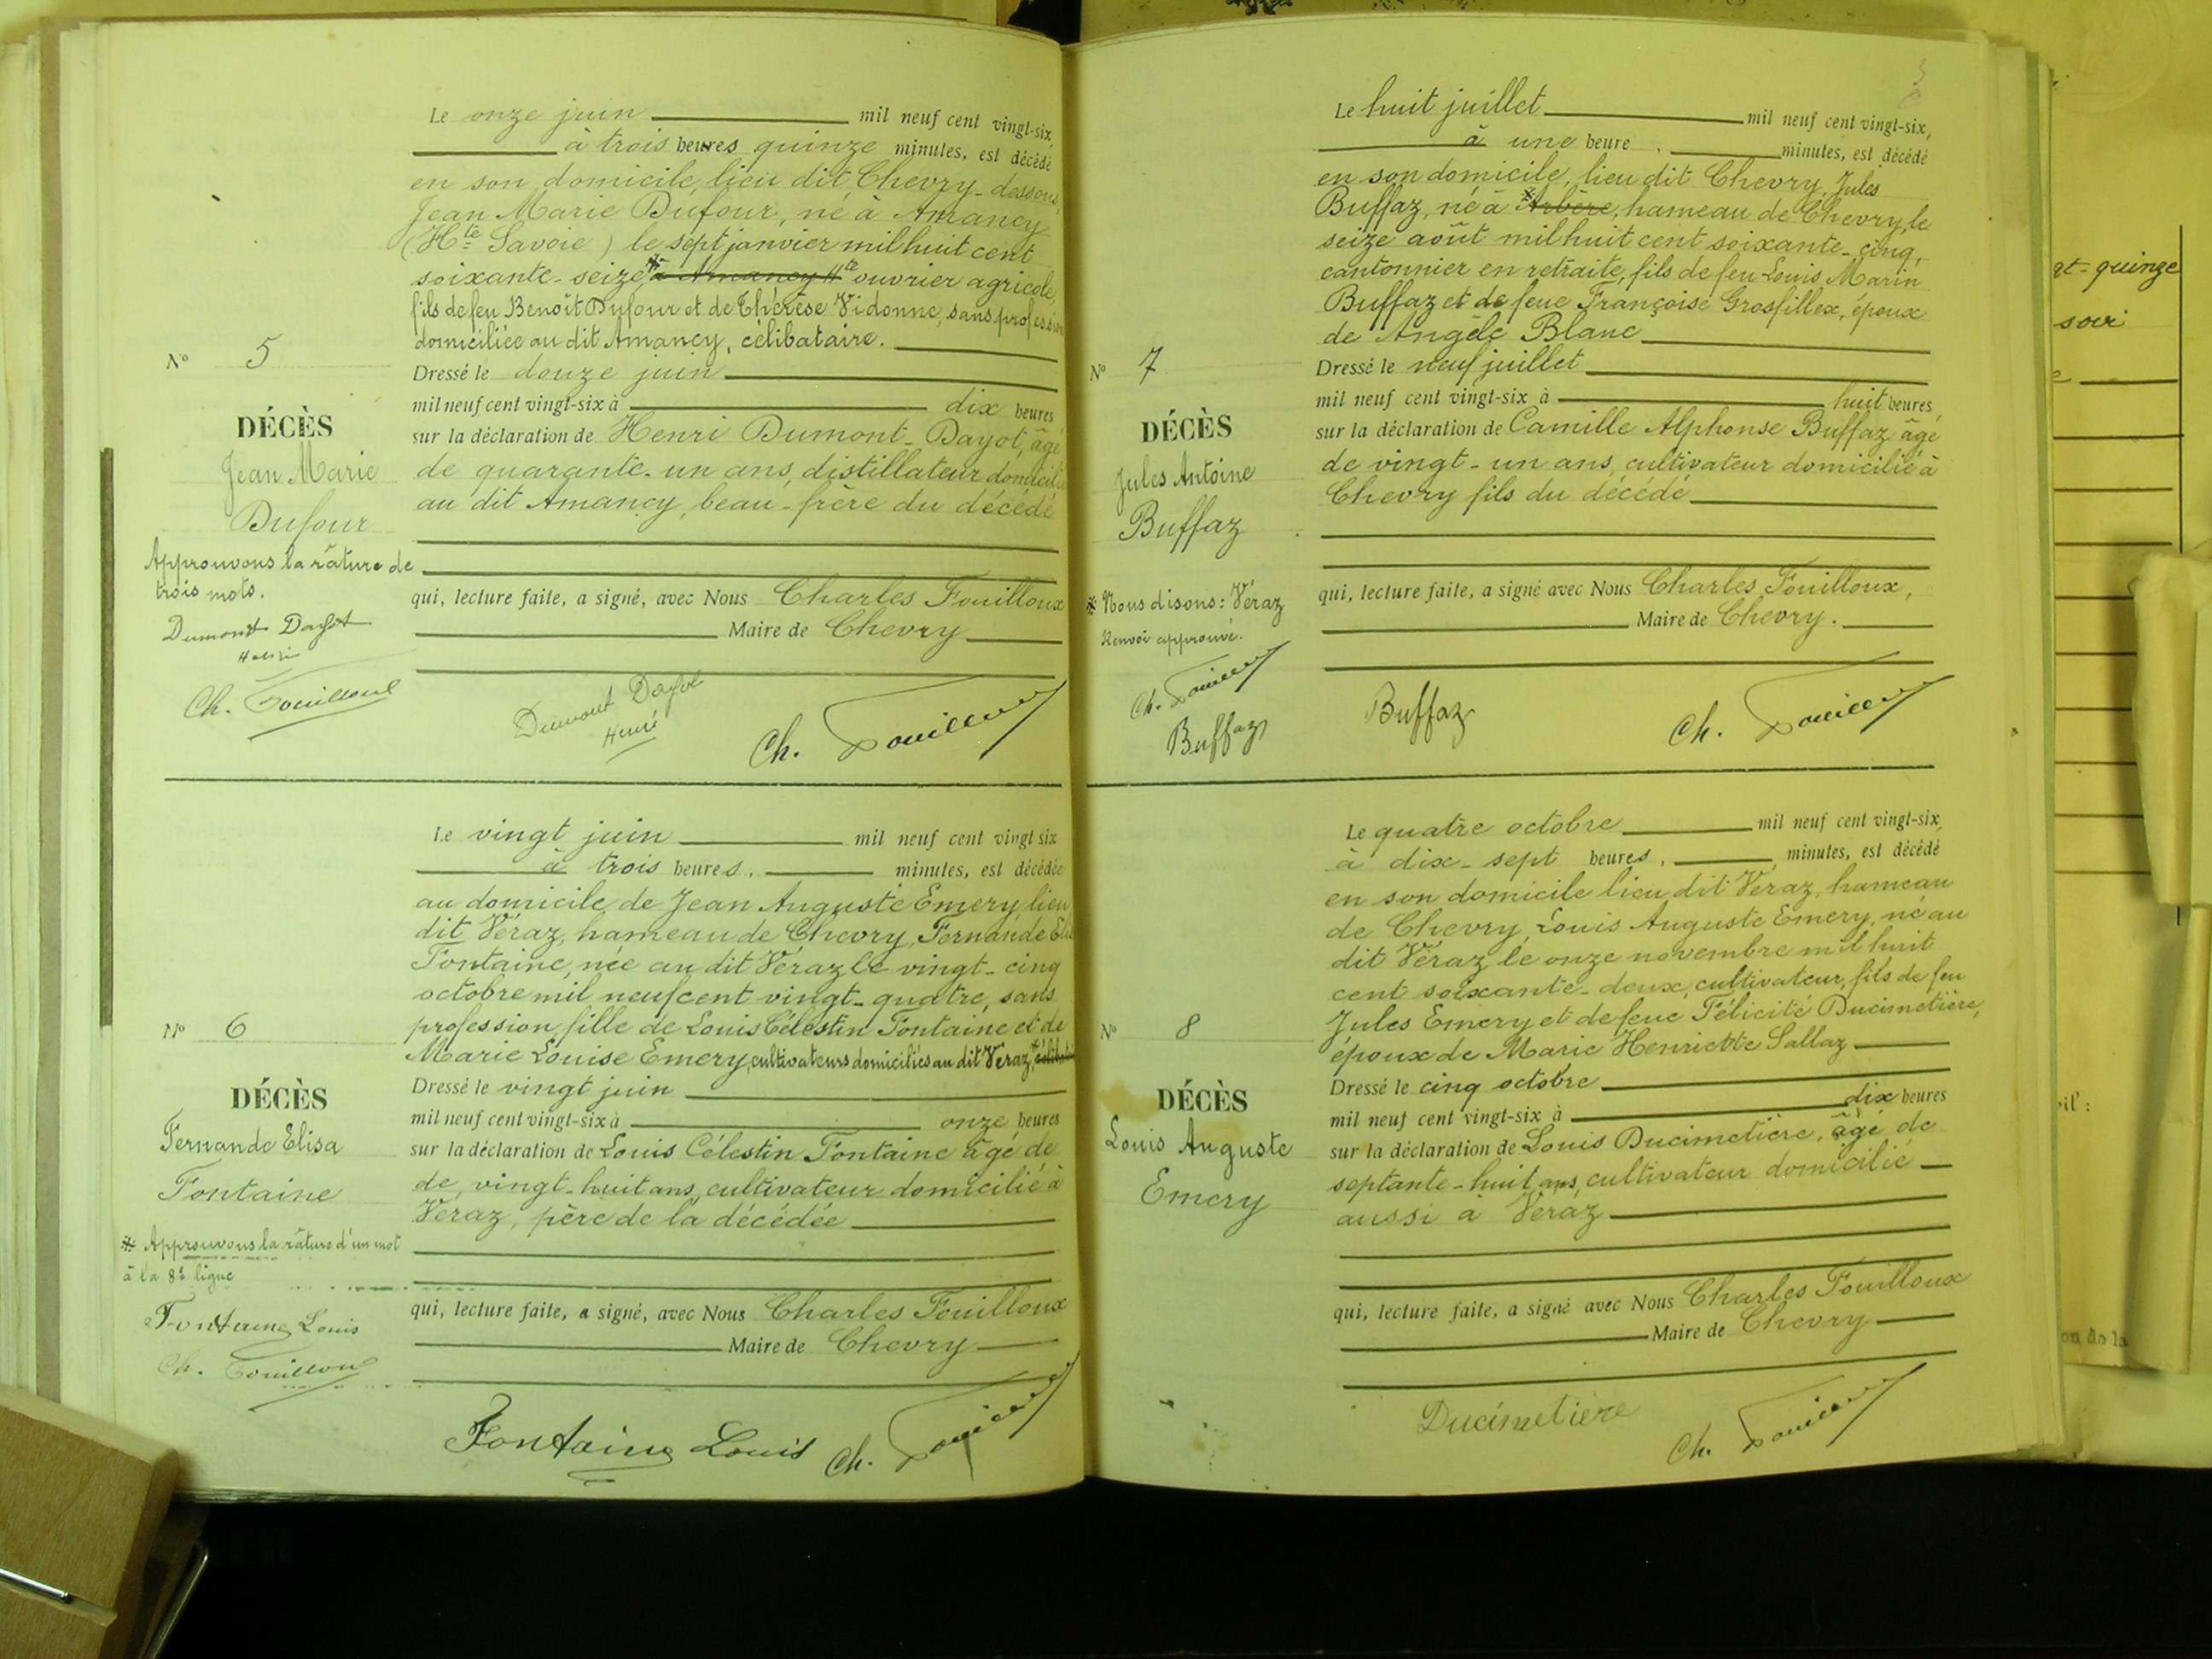 Le onze juin mil neuf cent vingt-six,
à trois heures quinze minutes, est décédé
en son domicile, lieu dit Chevry-dessous,
Jean Marie Dufour, né à Amancy
(Hte Savoie) le sept janvier mil huit cent
soixante-seize, * à Amancy Hte ouvrier agricole,
fils de feu Benoît Dufour et de Thérèse Vidonne, sans profession
domiciliée au dit Amancy, célibataire.
Dressé le douze juin
mil neuf cent vingt-six à dix heures
sur la déclaration de Henri Dumont-Dayot, âgé
de quarante-un ans, distillateur domicilié
au dit Amancy, beau-frère du décédé
qui, lecture faite, a signé, avec Nous Charles Fouilloux
Maire de Chevry
Dumont Dayot
Henri
Ch. Fouilloux
N° 5
DÉCÈS
Jean Marie
Dufour
Approuvons la râture de
trois mots.
Dumont Dayot
Henri
Ch. Fouilloux
Le vingt juin mil neuf cent vingt six
à trois heures, minutes, est décédée
au domicile de Jean Auguste Emery, lieu
dit Véraz, hameau de Chevry, Fernande Eli
Fontaine, née au dit Véraz le vingt-cinq
octobre mil neuf cent vingt-quatre, sans
profession, fille de Louis Célestin Fontaine et de
Marie Louise Emery, cultivateurs domiciliés au dit Véraz, *
Dressé le vingt juin
mil neuf cent vingt-six à onze heures
sur la déclaration de Louis Célestin Fontaine âgé de
de vingt-huit ans, cultivateur domicilié à
Véraz, père de la décédée
qui, lecture faite, a signé, avec Nous Charles Fouilloux
Maire de Chevry
Fontaine Louis Ch. Fouilloux
N° 6
DÉCÈS
Fernande Elisa
Fontaine
* Approuvons la râture d'un mot
à la 8e ligne
Fontaine Louis
Ch. Fouilloux
Le huit juillet mil neuf cent vingt-six,
à une heure, minutes, est décédé
en son domicile, lieu dit Chevry, Jules
Buffaz, né à * Arbère, hameau de Chevry, le
seize août mil huit cent soixante-cinq,
cantonnier en retraite, fils de feu Louis Marin
Buffaz et de feue Françoise Grosfillex, époux
de Angèle Blanc
Dressé le neuf juillet
mil neuf cent vingt-six à huit heures,
sur la déclaration de Camille Alphonse Buffaz âgé
de vingt-un ans, cultivateur domicilié à
Chevry fils du décédé
qui, lecture faite, a signé avec Nous Charles Fouilloux,
Maire de Chevry.
Buffaz Ch. Fouilloux
N° 7
DÉCÈS
Jules Antoine
Buffaz
* Nous disons: Véraz
Renvoi approuvé.
Ch. Fouilloux
Buffaz
Le quatre octobre mil neuf cent vingt-six,
à dix-sept heures, minutes, est décédé
en son domicile lieu dit Véraz, hameau
de Chevry, Louis Auguste Emery, né au
dit Véraz le onze novembre mil huit
cent soixante-deux, cultivateur, fils de feu
Jules Emery et de feue Félicité Ducimetière,
époux de Marie Henriette Sallaz
Dressé le cinq octobre
mil neuf cent vingt-six à dix heures
sur la déclaration de Louis Ducimetière, âgé de
septante-huit ans, cultivateur domicilié
aussi à Véraz
qui, lecture faite, a signé avec Nous Charles Fouilloux
Maire de Chevry
Ducimetière
Ch. Fouilloux
N° 8
DÉCÈS
Louis Auguste
Emery
gt-quinze
soir
il :
on de la